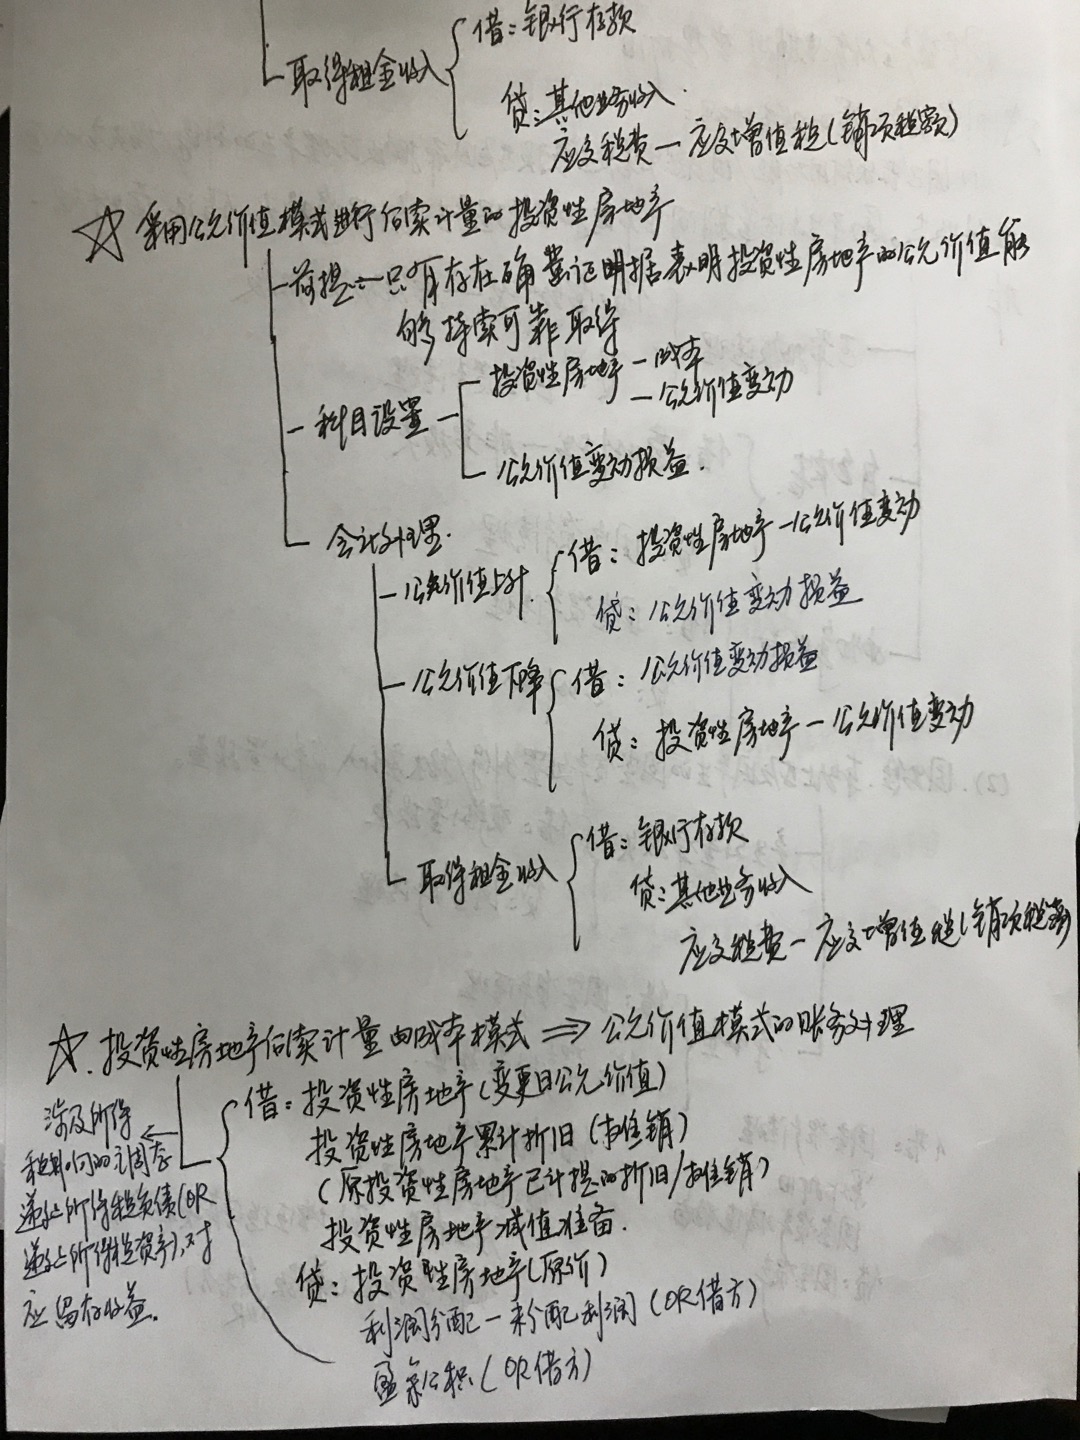 取得租金收入
借：银行存款
贷：其他业务收入
应交税费—应交增值税(销项税额)
☆ 采用公允价值模式进行后续计量的投资性房地产
前提：只有存在确凿证明据表明投资性房地产的公允价值能
够持续可靠取得
科目设置
投资性房地产—成本
—公允价值变动
公允价值变动损益.
会计处理.
公允价值上升.
借：投资性房地产—公允价值变动
贷：公允价值变动损益
公允价值下降
借：公允价值变动损益
贷：投资性房地产—公允价值变动
取得租金收入
借：银行存款
贷：其他业务收入
应交税费—应交增值税(销项税额)
☆. 投资性房地产后续计量由成本模式⇒公允价值模式的账务处理
借：投资性房地产(变更日公允价值)
投资性房地产累计折旧(摊销)
(原投资性房地产已计提的折旧/摊销)
投资性房地产减值准备.
贷：投资性房地产(原价)
利润分配—未分配利润(OR借方)
盈余公积(OR借方)
涉及所得
税影响的调整
递延所得税负债(OR
递延所得税资产),对
应留存收益.